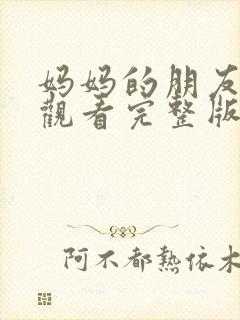 妈妈的朋友
觀看完整版
阿不都熱依木